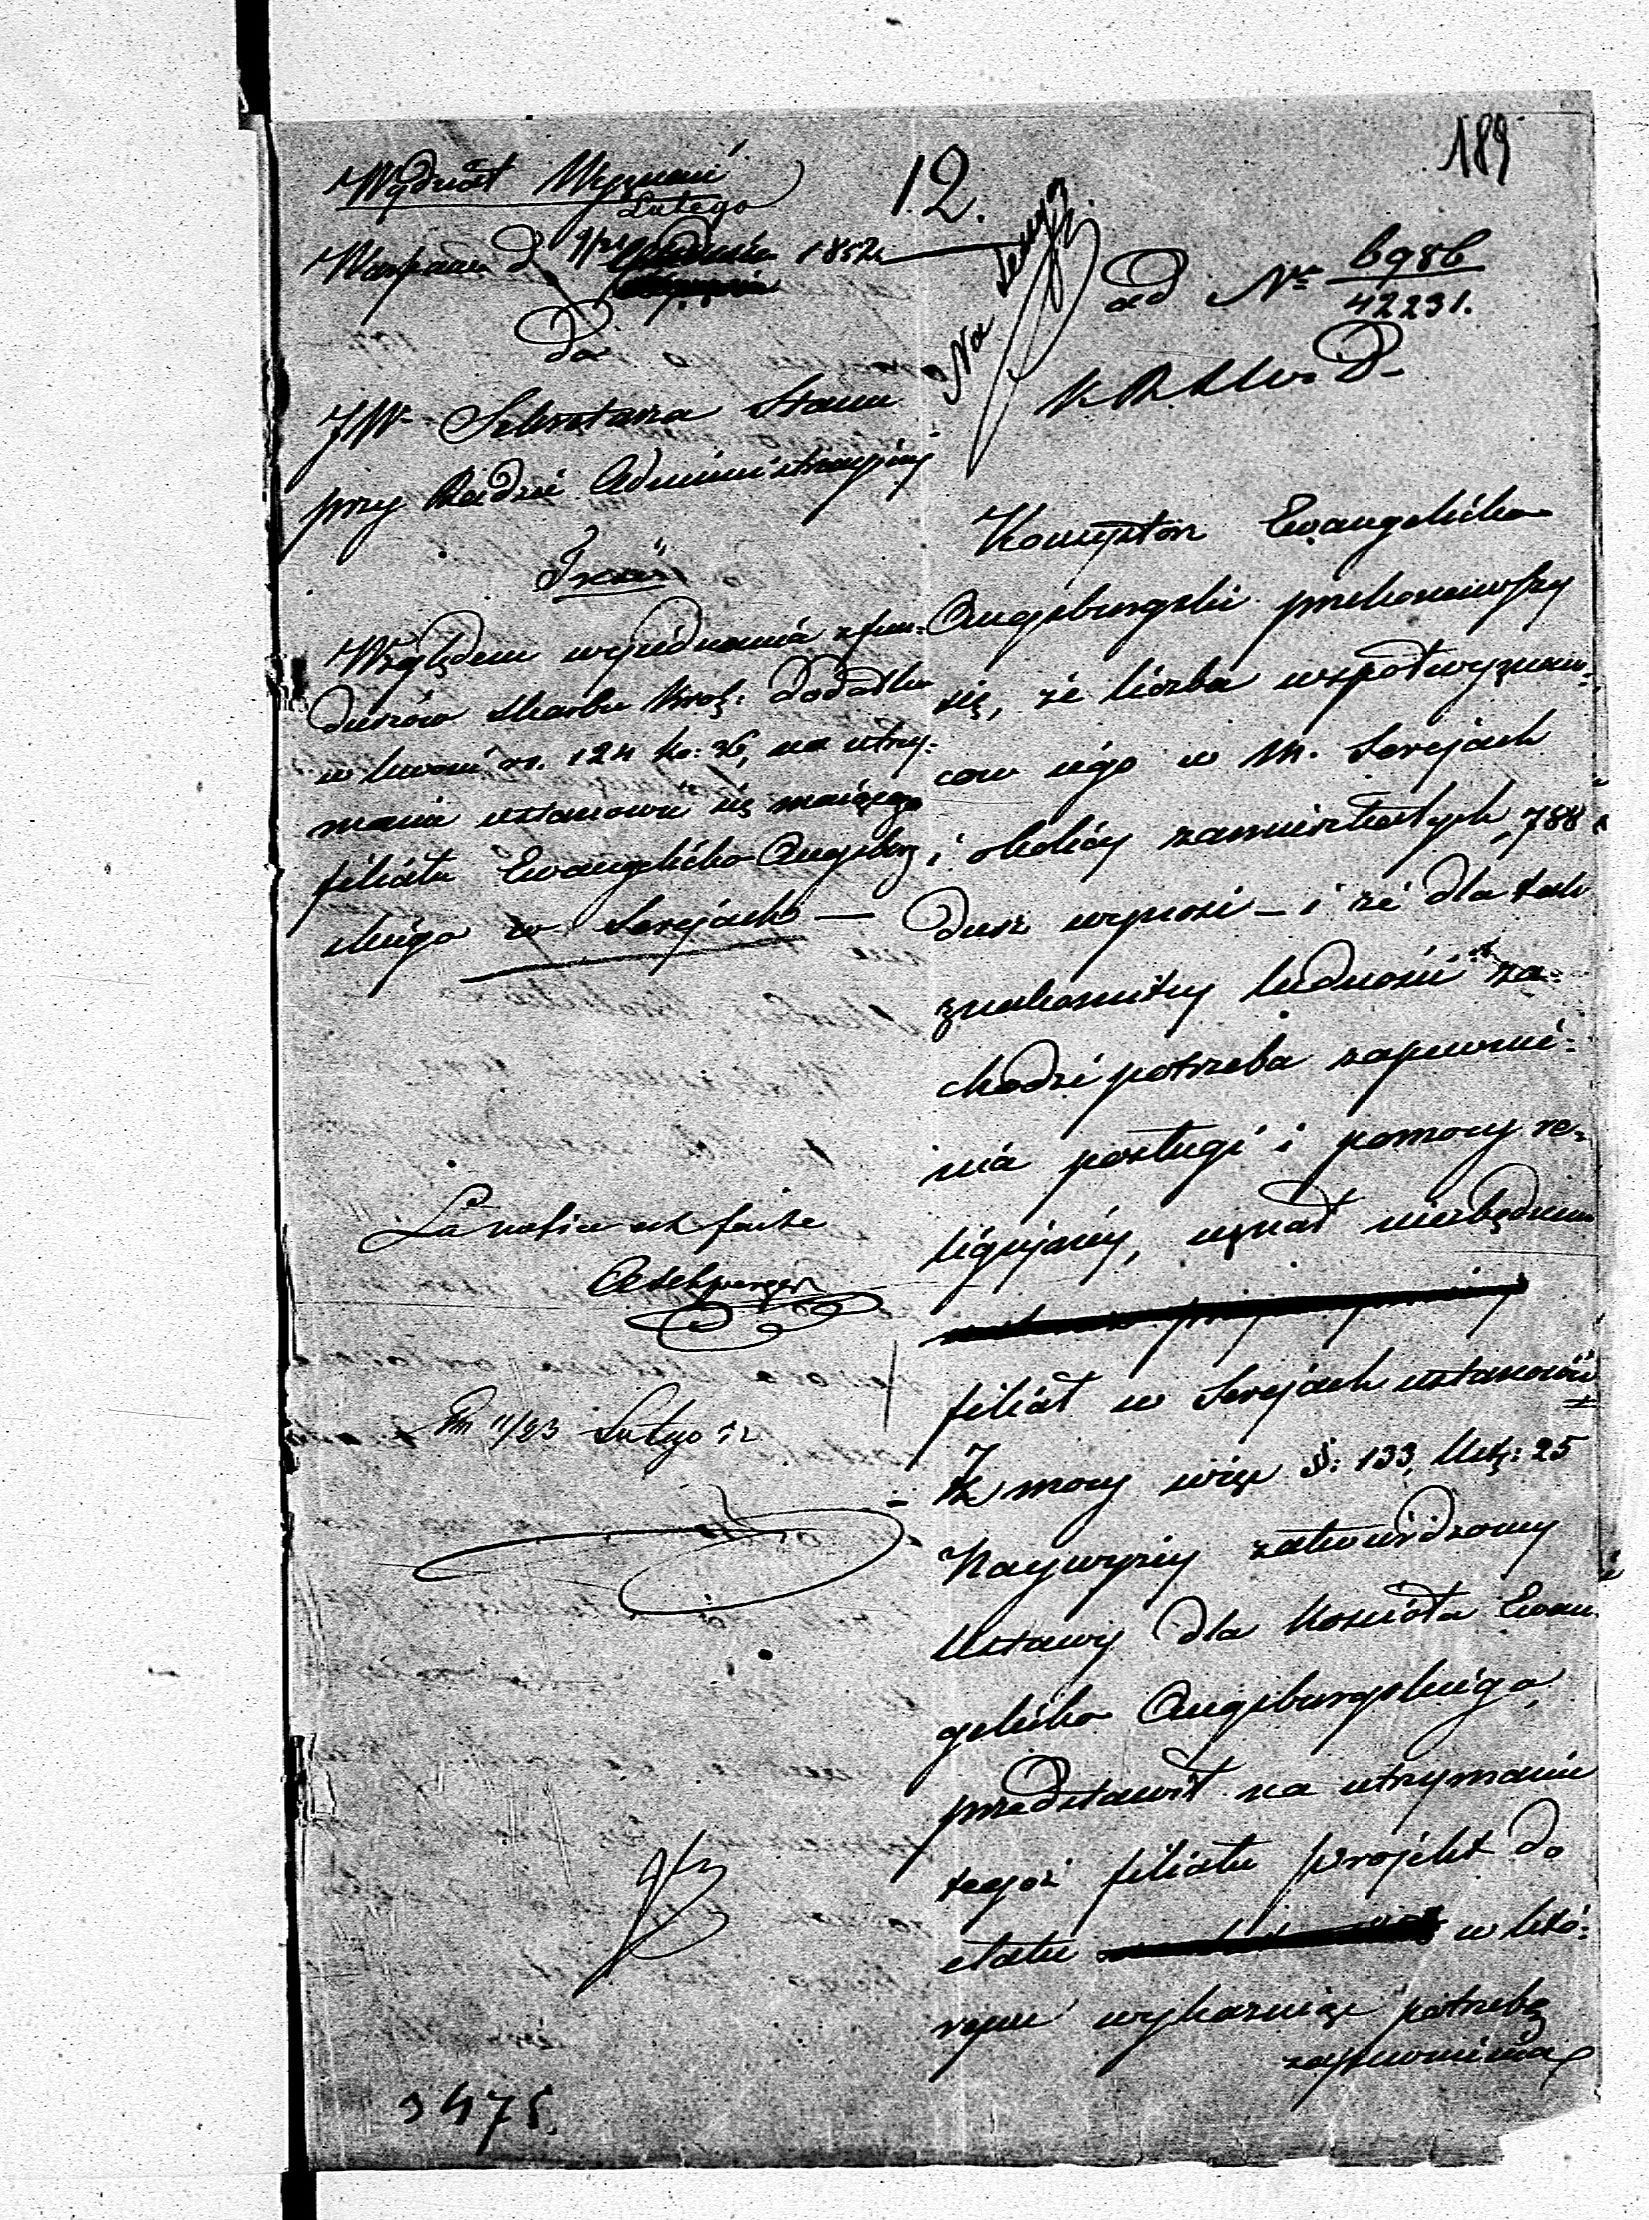 189
12.
Wydział Wyznań
Lutego
Warszawa d. 1852
ad Nr 6986/42231.
Do
JW Sekretarza Stanu
przy Radzie Administracyjnej
K. R. S. W. i D.
Względem wyjednania z fun-
duszów Skarbu Król: dodatku
w kwocie rs. 124 ko: 36, na utrzy-
manie ustanowić się maiącego
filiału Ewangelicko Augsbur
skiego w Serejach —
Konsystorz Ewangelicko
Augsburgski przekonawszy
się, że liczba współwyznaw-
ców iego w M. Serejach
i okolicy zamieszkałych, 788
dusz wynosi – i że dla tak
znakomitey ludności za-
chodzi potrzeba zapewnie-
nia posługi i pomocy re-
ligijney, uznał niezbędnem
filiał w Serejach ustanowić
Z mocy więc §: 133, Ust: 25
Naywyżey zatwierdzoney
Ustawy dla Kościoła Ewan
gelicko Augsburgskiego
przedstawił na utrzymanie
tegoż filiału projekt do
etatu w któ-
rym wykazuiąc potrzebę
zapewnienia
11/23 Lutego 52
3475.